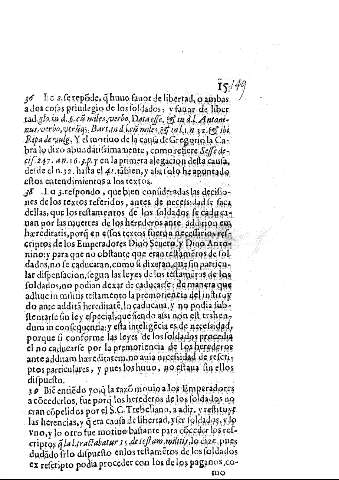 15 149
36 I o 2. se respõde, q̃ huuo fauor de libertad, o ambas
a dos cosas priuilegio de los soldados, y fauor de liber
tad in d.
Y el motiuo de la causa de Gregorio la Ca
bra lo dixo abundãtissimamente, como refiere Sesse de
cis. 247. an. 16. y en la primera alegacion desta causa,
desde el n. 32. hasta el 41. tãbien, y abaxo he apuntado
estos entendimientos a los textos.
38 Lo 3. respondo, que bien consideradas las decisio-
nes de los textos referidos, antes de necessidad se saca
dellas, que los testamentos de los soldados se caducauan
por las muertes de los herederos ante aditionem
hæreditatis, porq̃ en essos textos fueron necessarios res-
criptos de los Emperadores Diuo Seuero, y Diuo Anto-
nino; y para que no obstante que eran testamẽtos de sol-
dados, no se caducaran, como si dixeran, que sin particu-
lar dispensacion, segun las leyes de los testamẽtos de los
soldados, no podian dexar de caducarse: de manera que
adhuc in militis testamento la premoriencia del institu y-
do ante adità hæreditatẽ, la caducaua, y no podia sub-
stentarse sin ley especial, que siendo assi non est trahen-
dum in consequentia; y esta inteligẽcia es de necessidad,
porque si conforme las leyes de los soldados procedia
el no caducarse por la premoriencia de los herederos
ante additam hæreditatem, no auia necessidad de rescri-
ptos particulares, y pues los huuo, no estaua sin ellos
dispuesto.
39 Biẽ entiẽdo yo, q̃ la razõ mouio a los Emperadores
a cõcederlos, fue porq̃ los herederos de los soldados no
eran cõpelidos por el S.C. Trebeliano, a adir, y restituyr
las herencias, y q̃ era causa de libertad, y ser soldado, y lo v
no, y lo otro fue motiuo bastante para cõceder los res-
criptos q̃ la l. tractabatur 15. de testam. militis, lo dize, pues
dudãdo si lo dispuesto en los testamẽtos de los soldados
ex rescripto podia proceder con los de los paganos, co-
mo